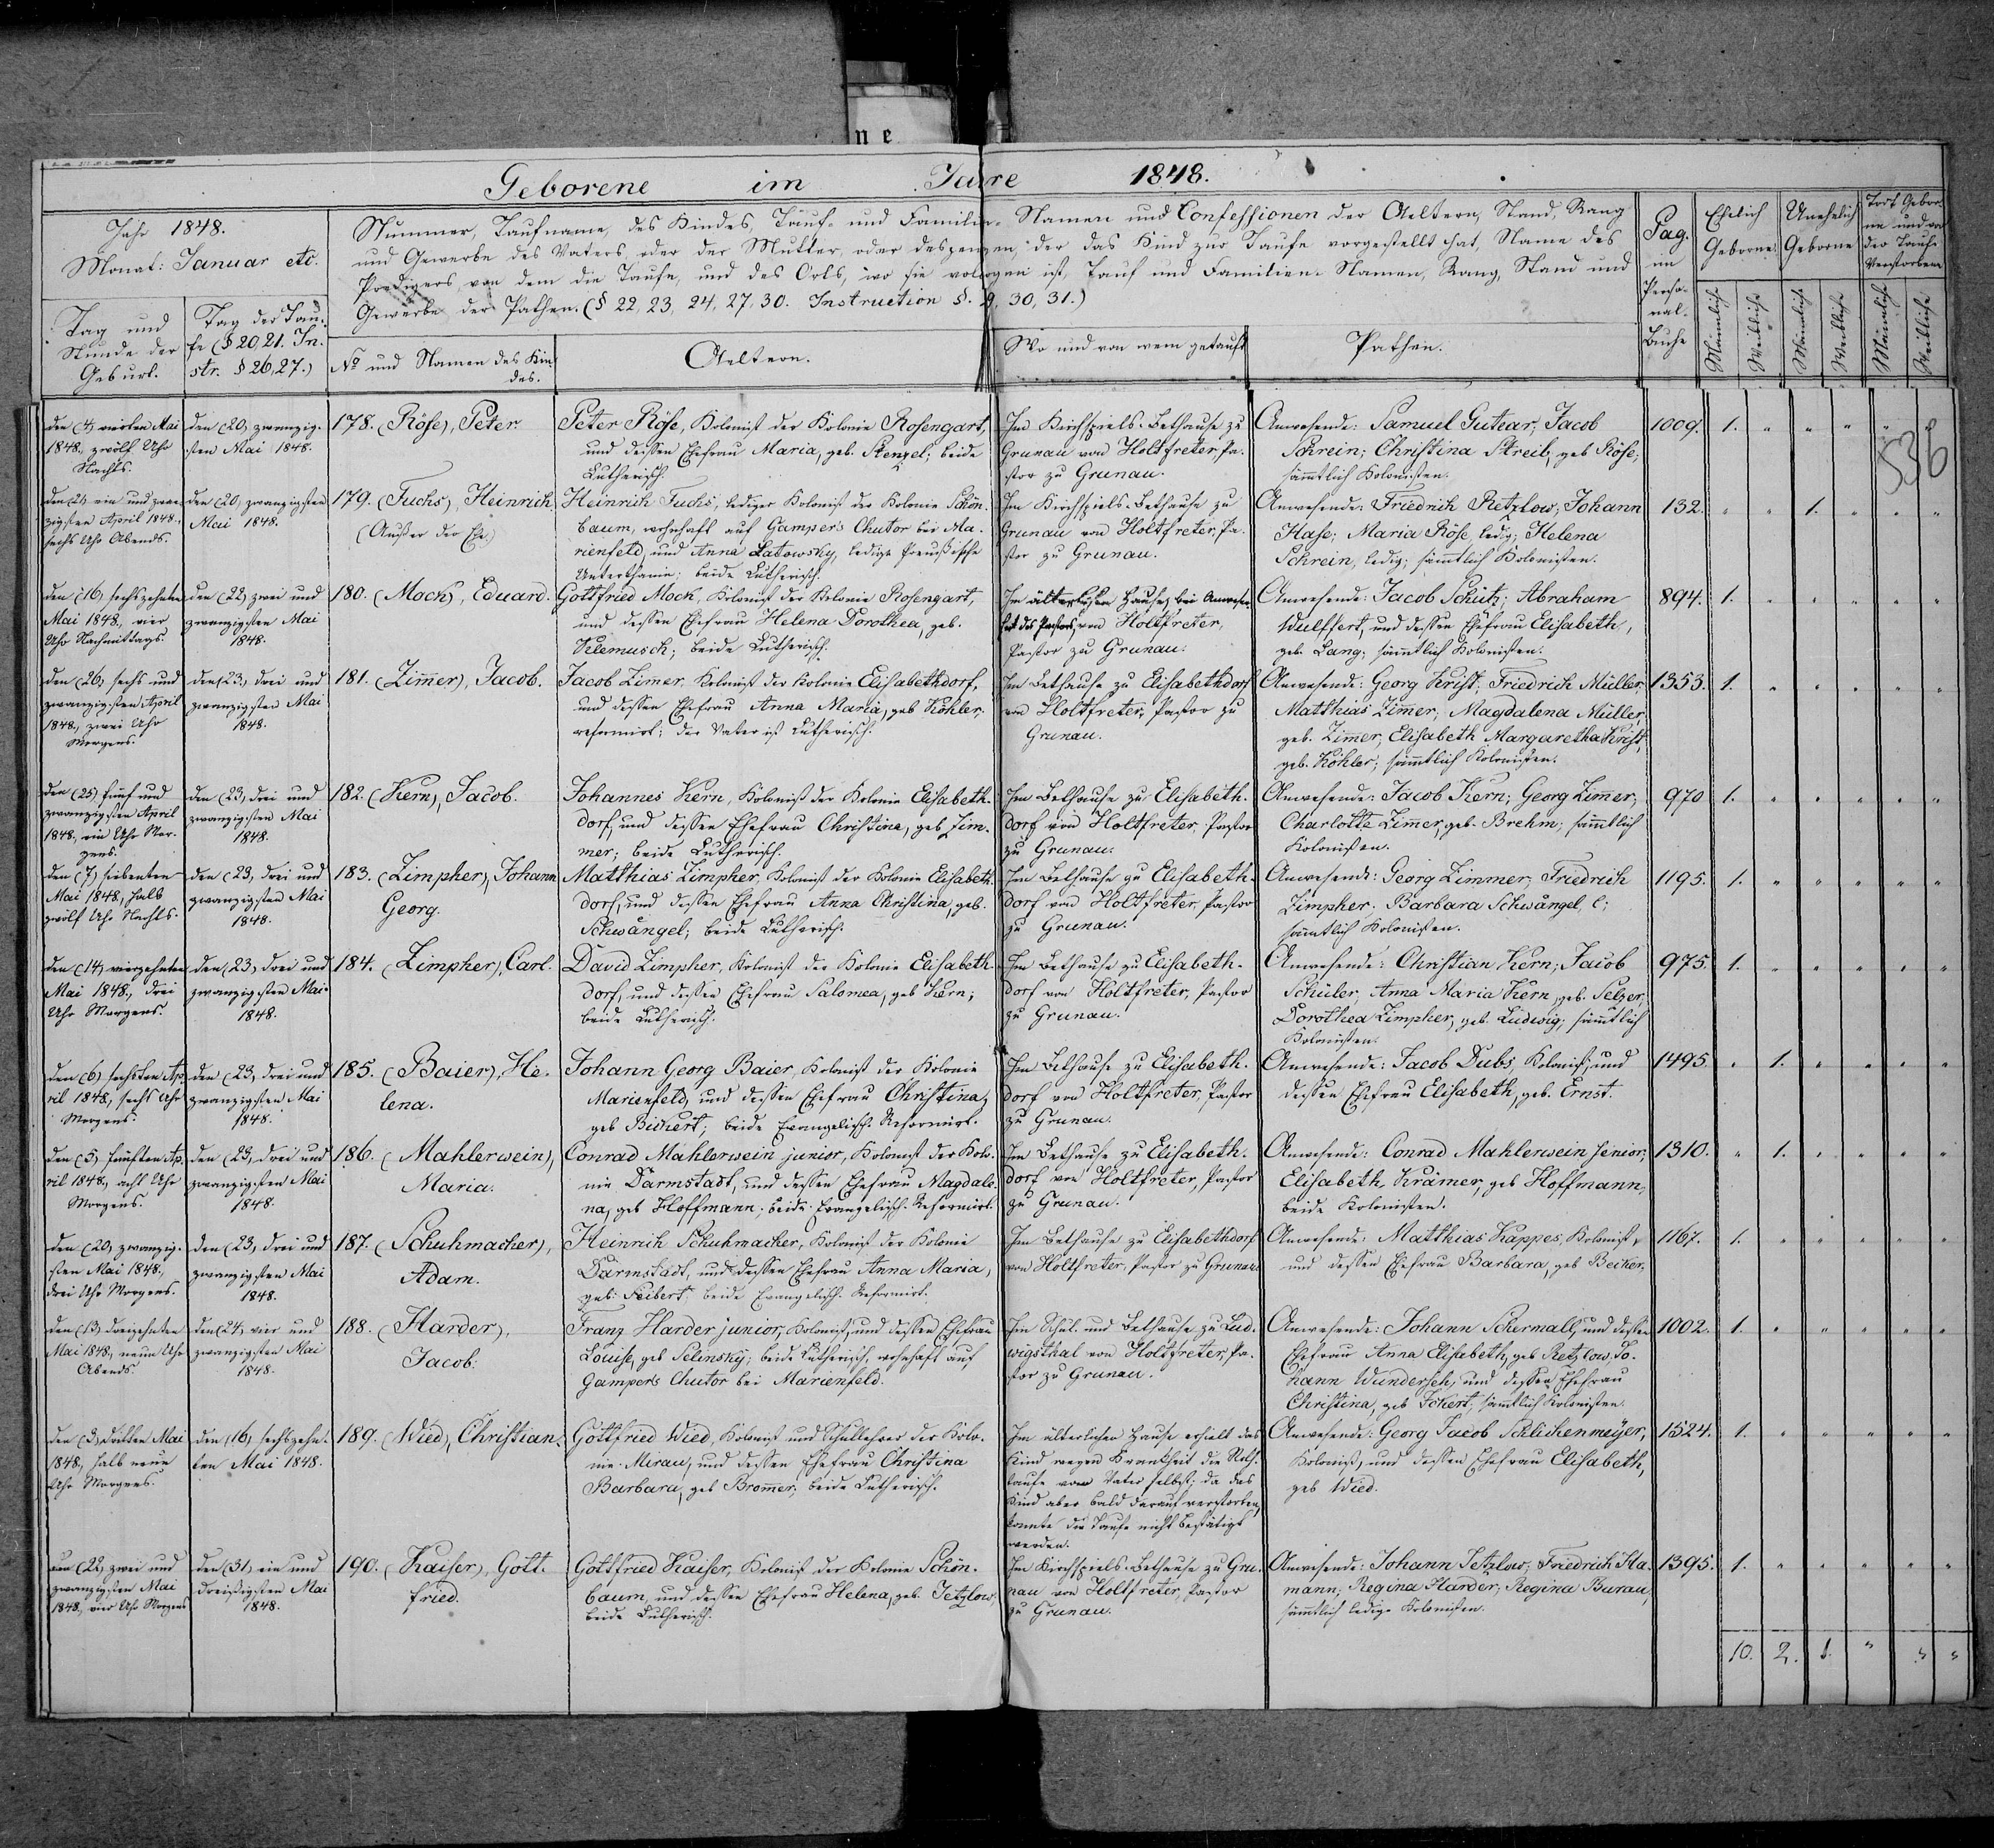 n e
Geborene im Jahre 1848.
Jahr 1848.
Monat: Januar etc.
Nummer, Taufname, des Kindes, Tauf- und Familien-Namen und Confessionen der Aeltern, Stand, Rang
und Gewerbe des Vaters, oder der Mutter, oder desjenigen, der das Kind zur Taufe vorgestellt hat, Name des
Predigers, von dem die Taufe, und des Orts, wo sie vollzogen ist, Tauf und Familien-Namen, Rang, Stand und
Gewerbe der Pathen. (§ 22, 23, 24, 27, 30. Instruction §. 30, 31.)
Tag und
Stunde der
Geburt.
Tag der Tau-
fe (§ 20, 21. In-
str. § 26, 27.)
No und Namen des Kin-
des.
Aeltern.
Wo und von wem getauft
Pathen.
Pag.
im
Perso-
nal-
Buche
Ehelich
Geborne
Unehelich
Geborne
Todt Gebor-
ne und vor
der Taufe
Verstorbene
Männliche
Weibliche
Männliche
Weibliche
Männliche
Weibliche
536
den (4) vierten Mai
1848., zwölf Uhr
Nachts.
den (20) zwanzig-
sten Mai 1848.
178. (Röse), Peter
Peter Röse, Kolonist der Kolonie Rosengart,
und dessen Ehefrau Maria, geb. Stenzel; beide
Lutherisch.
Im Kirchspiels-Bethause zu
Grunau von Holtfreter, Pa-
stor zu Grunau.
Anwesende: Samuel Gutear; Jacob
Schrein; Christina Streib, geb. Röse;
sämmtlich Kolonisten.
1009. 1. " " " " "
den (21) ein und zwan-
zigsten April 1848.,
sechs Uhr Abends.
den (20) zwanzigsten
Mai 1848.
179. (Fuchs), Heinrich
(Außer der Ehe.)
Heinrich Fuchs, lediger Kolonist der Kolonie Schön-
baum, wohnhaft auf Gampers Chutor bei Ma-
rienfeld, und Anna Latowsky, ledige Preußische
Unterthanin; beide Lutherisch.
Im Kirchspiels-Bethause zu
Grunau von Holtfreter, Pa-
stor zu Grunau.
Anwesende: Friedrich Retzlow; Johann
Hase; Maria Röse, ledig; Helena
Schrein, ledig; sämtlich Kolonisten.
132. " " 1. " " "
den (16) sechszehnten
Mai 1848., vier
Uhr Nachmittags.
den (22) zwei und
zwanzigsten Mai
1848.
180. (Mock), Eduard.
Gottfried Mock, Kolonist der Kolonie Rosengart,
und dessen Ehefrau Helena Dorothea, geb.
Klemusch; beide Lutherisch.
Im älterlichen Hause, bei Anwesen-
heit des Pastors, von Holtfreter,
Pastor zu Grunau.
Anwesende: Jacob Schütz; Abraham
Wulffert, und dessen Ehefrau Elisabeth,
geb. Lang; sämmtlich Kolonisten.
894. 1. " " " " "
den (26) sechs und
zwanzigsten April
1848., zwei Uhr
Morgens.
den (23) drei und
zwanzigsten Mai
1848.
181. (Zimer), Jacob.
Jacob Zimer, Kolonist der Kolonie Elisabethdorf,
und dessen Ehefrau Anna Maria, geb. Köhler,
reformirt; der Vater ist Lutherisch.
Im Bethause zu Elisabethdorf
von Holtfreter, Pastor zu
Grunau.
Anwesende: Georg Krist; Friedrich Müller;
Matthias Zimer; Magdalena Müller,
geb. Zimer; Elisabeth Margaretha Krist,
geb. Köhler; sämmtlich Kolonisten.
1353. 1. " " " " "
den (25) fünf und
zwanzigsten April
1848., ein Uhr Mor-
gens.
den (23) drei und
zwanzigsten Mai
1848.
182. (Kern), Jacob.
Johannes Kern, Kolonist der Kolonie Elisabeth-
dorf, und dessen Ehefrau Christina, geb. Zim-
mer; beide Lutherisch.
Im Bethause zu Elisabeth-
dorf von Holtfreter, Pastor
zu Grunau.
Anwesende: Jacob Kern; Georg Zimer;
Charlotte Zimer, geb. Brehm; sämmtlich
Kolonisten.
970 1. " " " " "
den (7) siebenten
Mai 1848., halb
zwölf Uhr Nachts.
den (23) drei und
zwanzigsten Mai
1848.
183. (Zimpher), Johann
Georg.
Matthias Zimpher, Kolonist der Kolonie Elisabeth-
dorf, und dessen Ehefrau Anna Christina, geb.
Schwängel; beide Lutherisch.
Im Bethause zu Elisabeth-
dorf von Holtfreter, Pastor
zu Grunau.
Anwesende: Georg Zimmer; Friedrich
Zimpher. Barbara Schwängel, l;
sämtlich Kolonisten.
1195. 1. " " " " "
den (14) vierzehnten
Mai 1848., drei
Uhr Morgens.
den (23) drei und
zwanzigsten Mai
1848.
184. (Zimpher), Carl.
David Zimpher, Kolonist der Kolonie Elisabeth-
dorf, und dessen Ehefrau Salomea, geb. Kern;
beide Lutherisch.
Im Bethause zu Elisabeth-
dorf von Holtfreter, Pastor
zu Grunau.
Anwesende: Christian Kern; Jacob
Schüler, Anna Maria Kern, geb. Selzer;
Dorothea Zimpher, geb. Ludwig; sämtlich
Kolonisten.
975. 1. " " " " "
den (6) sechsten Ap-
ril 1848., sechs Uhr
Morgens.
den (23) drei und
zwanzigsten Mai
1848.
185. (Baier), He-
lena.
Johann Georg Baier, Kolonist der Kolonie
Marienfeld, und dessen Ehefrau Christina,
geb. Bichert; beide Evangelisch-Reformirt.
Im Bethause zu Elisabeth-
dorf von Holtfreter, Pastor
zu Grunau.
Anwesende: Jacob Dubs, Kolonist, und
dessen Ehefrau Elisabeth, geb. Ernst.
1495. " 1. " " " "
den (5) fünften Ap-
ril 1848., acht Uhr
Morgens.
den (23) drei und
zwanzigsten Mai
1848.
186. (Mahlerwein),
Maria.
Conrad Mahlerwein junior, Kolonist der Kolo-
nie Darmstadt, und dessen Ehefrau Magdale-
na, geb. Hoffmann; beide Evangelisch-Reformirt.
Im Bethause zu Elisabeth-
dorf von Holtfreter, Pastor
zu Grunau.
Anwesende: Conrad Mahlerwein senior;
Elisabeth Krämer, geb. Hoffmann;
beide Kolonisten.
1310. " 1. " " " "
den (20) zwanzig-
sten Mai 1848.,
drei Uhr Morgens.
den (23) drei und
zwanzigsten Mai
1848.
187. (Schuhmacher),
Adam.
Heinrich Schuhmacher, Kolonist der Kolonie
Darmstadt, und dessen Ehefrau Anna Maria,
geb. Seibert; beide Evangelisch-Reformirt.
Im Bethause zu Elisabethdorf
von Holtfreter, Pastor zu Grunau.
Anwesende: Matthias Kappes, Kolonist,
und dessen Ehefrau Barbara, geb. Becker.
1167. 1. " " " " "
den (13) dreizehnten
Mai 1848., neun Uhr
Abends.
den (24) vier und
zwanzigsten Mai
1848.
188. (Harder),
Jacob.
Franz Harder junior, Kolonist, und dessen Ehefrau
Louise, geb. Selinsky; beide Lutherisch, wohnhaft auf
Gampers Chutor bei Marienfeld.
Im Schul- und Bethause zu Lud-
wigsthal von Holtfreter, Pa-
stor zu Grunau.
Anwesende: Johann Schermall, und dessen
Ehefrau Anna Elisabeth, geb. Retzlow; Jo-
hann Wundersch, und dessen Ehefrau
Christina, geb. Schert; sämtlich Kolonisten.
1002. 1. " " " " "
den (3) dritten Mai
1848., halb neun
Uhr Morgens.
den (16) sechszehn-
ten Mai 1848.
189. (Wied), Christian.
Gottfried Wied, Kolonist und Schullehrer der Kolo-
nie Mirau, und dessen Ehefrau Christina
Barbara, geb. Bromer; beide Lutherisch.
Im älterlichen Hause erhielt das
Kind wegen Krankheit die Noth-
taufe vom Vater selbst; da das
Kind aber bald darauf verstorben,
konnte die Taufe nicht bestätigt
werden.
Anwesende: Georg Jacob Schlickenmeyer,
Kolonist, und dessen Ehefrau Elisabeth,
geb. Wied.
1524. 1. " " " " "
den (22) zwei und
zwanzigsten Mai
1848., vier Uhr Morgens
den (31) ein und
dreißigsten Mai
1848.
190. (Kaiser), Gott-
fried.
Gottfried Kaiser, Kolonist der Kolonie Schön-
baum, und dessen Ehefrau Helena, geb. Jetzlow;
beide Lutherisch.
Im Kirchspiels-Bethause zu Gru-
nau von Holtfreter, Pastor
zu Grunau.
Anwesende: Johann Jetzlow; Friedrich Ha-
mann; Regina Harder; Regina Burau;
sämtlich ledige Kolonisten.
1395. 1. " " " " "
10. 2. 1. " " "